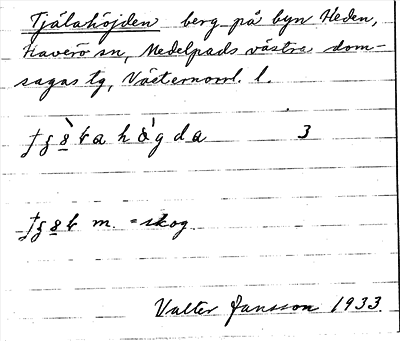 Tjälahöjden berg på byn Heden,
Haverö sn, Medelpads västra dom-
sagas tg, Västernorrl. l.
högda 3
m. = skog
Valter Jansson 1933.